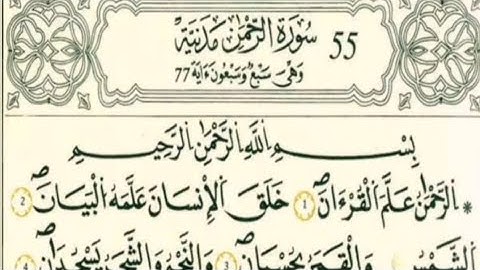 55 سُورَةُ الرَّحْمَٰنِ مَدَنِيَّة
وَهْيَ سَبْعٌ وَسَبْعُونَ ءَايَة 77
بِسْمِ اللَّهِ الرَّحْمَٰنِ الرَّحِيمِ
* الرَّحْمَٰنُ عَلَّمَ الْقُرْءَانَۖ 1 خَلَقَ الْإِنسَانَ عَلَّمَهُ الْبَيَانَۖ 2
الشَّمْسُ وَالْقَمَرُ بِحُسْبَانٍۖ 3 وَالنَّجْمُ وَالشَّجَرُ يَسْجُدَانِۖ 4